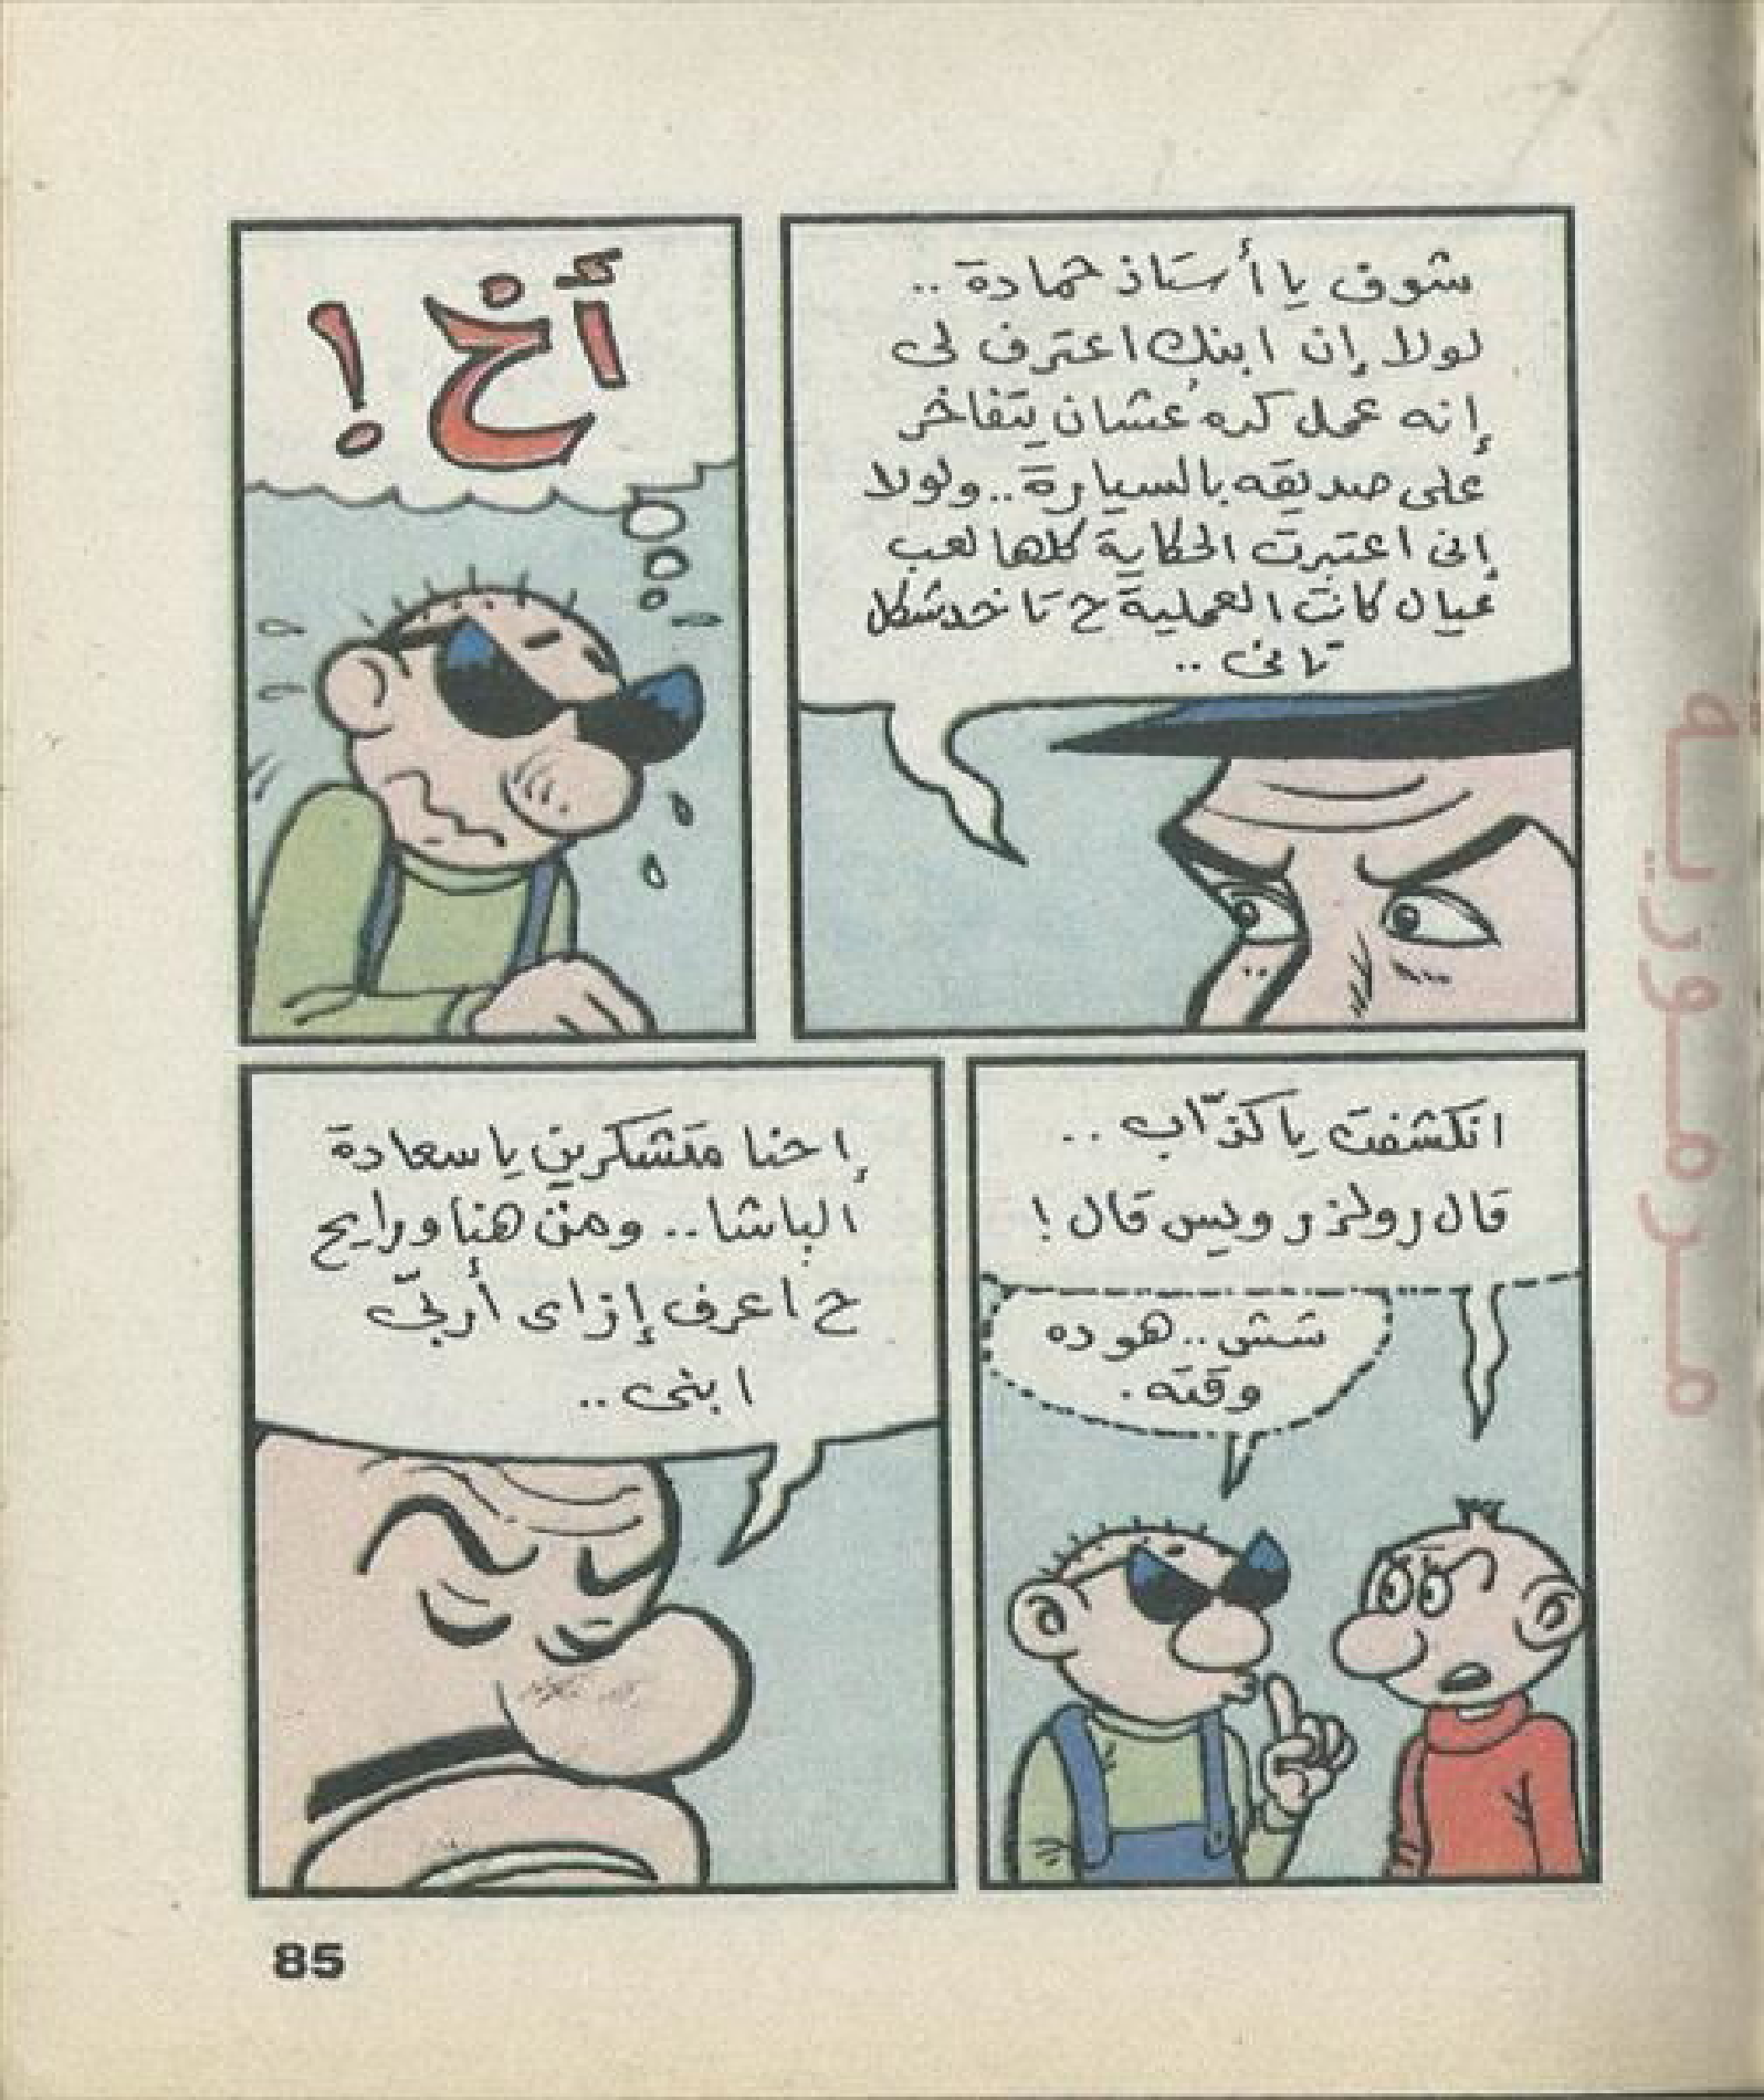 شوف يا أستاذ حمادة ..
لولا إن ابنك اعترف لى
إنه عمل كده عشان يتفاخر
على صديقه بالسيارة .. ولولا
إنى اعتبرت الحكاية كلها لعب
عيال كانت العملية ح تاخد شكل
تانى ..
أخ !
انكشفت يا كذّاب ..
قال رولز رويس قال !
شش .. هو ده
وقته .
إحنا متشكرين يا سعادة
الباشا .. ومن هنا ورايح
ح اعرف إزاى أربّى
ابنى ..
85